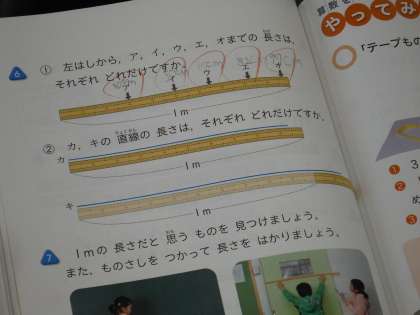 6
① 左はしから，ア，イ，ウ，エ，オまでの 長さは，
それぞれ どれだけですか。
ア イ ウ エ オ
1m
② カ，キの 直線の 長さは，それぞれ どれだけですか。
カ
1m
キ
1m
7
1mの 長さだと 思う ものを 見つけましょう。
また，ものさしを つかって 長さを はかりましょう。
算数を
やってみ
「テープもの
1 3
2
め
3